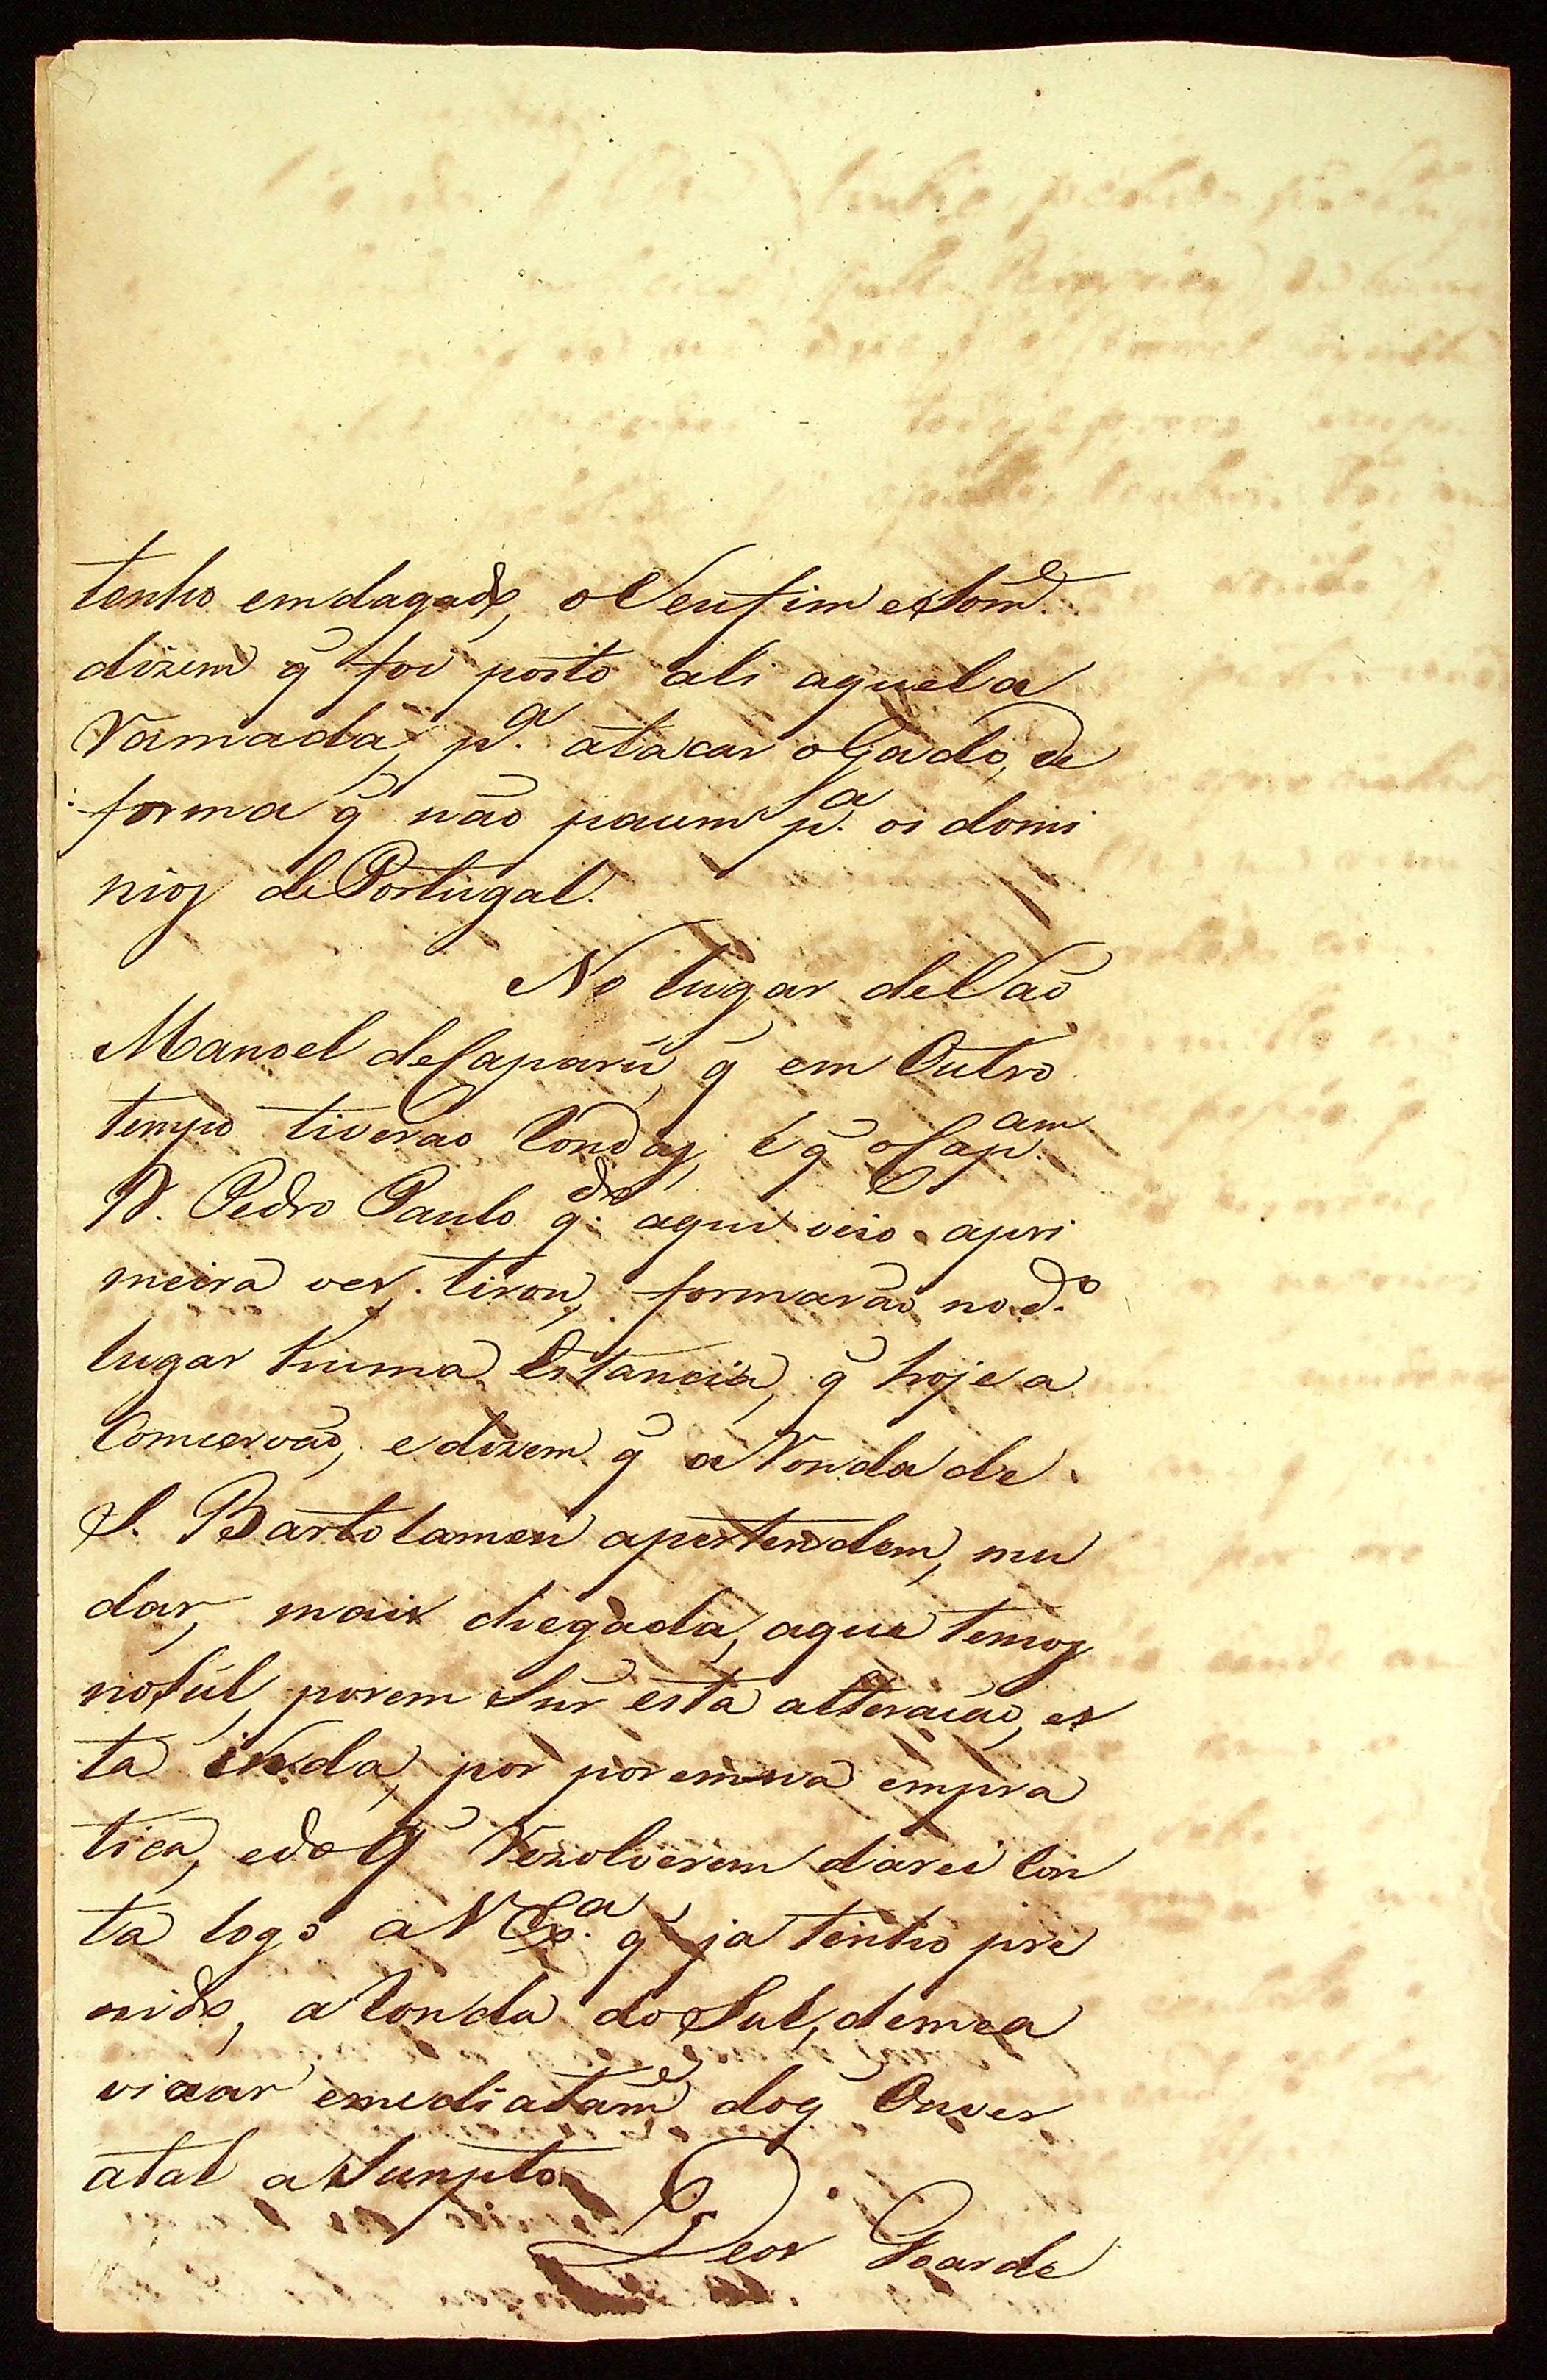 tenho emdagado, o Seu fim é Som.e
dizem q̃ foi posto ali aquela
Ramada, p.a atacar o Gado, de
forma q̃ não pacem p.a os domi
nios de Portugal.
No lugar de Saõ
Manoel de Caparú, q̃ em Outro
tempo tiverão Ronda, e q̃ o Cap.am
D. Pedro Paulo q.do aqui veio apri
meira vez tirou, formarão no d.o
lugar huma Estancia, q̃ hoje a
Comcervaõ, e dizem q̃ a Ronda de
S. Bartolameu apertendem, mu
dar, mais chegada, aque temos
no Sul, porem Sur esta alteracaõ, es
ta inda, por por emna empra
tica, e do q̃ Rezolverem darei Con
ta logo a V Ex.a q̃ ja tenho pre
nido, a Ronda do Sul, deme a
vizar emediatam.e do q̃ Ouver
atal a Sumpto.
Deos Goarde